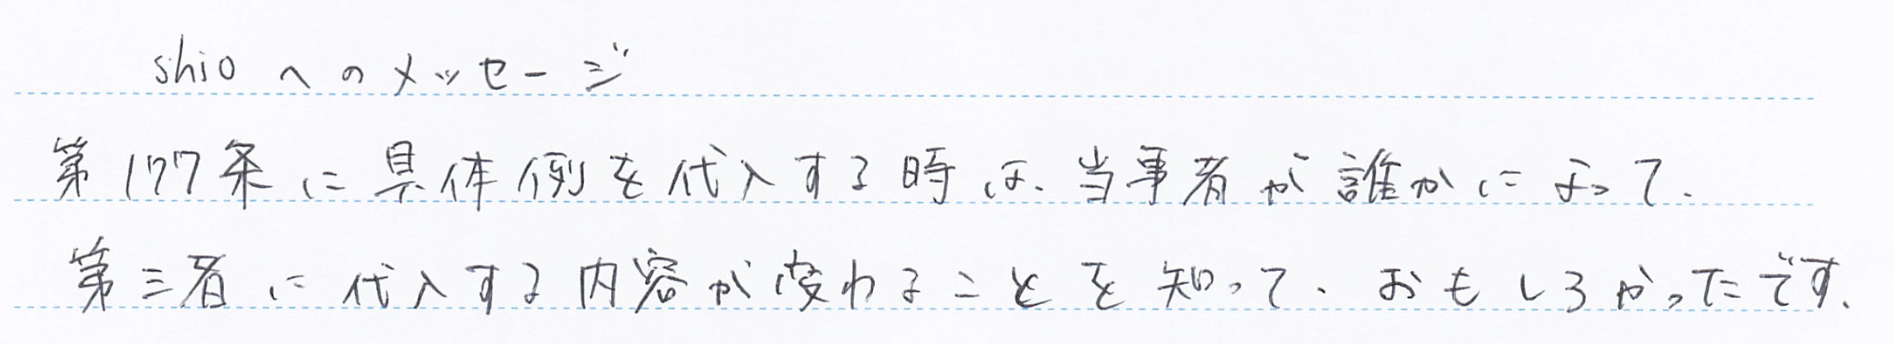 shioへのメッセージ
第177条に具体例を代入する時は、当事者が誰かによって、
第三者に代入する内容が変わることを知って、おもしろかったです。